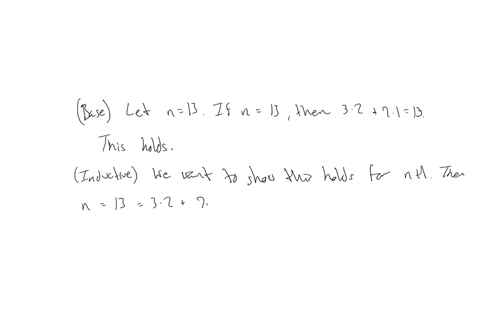 (Base) Let n=13. If n = 13, then 3·2 + 7·1 = 13.
This holds.
(Inductive) We want to show this holds for n+1. Then
n = 13 = 3·2 + 7.